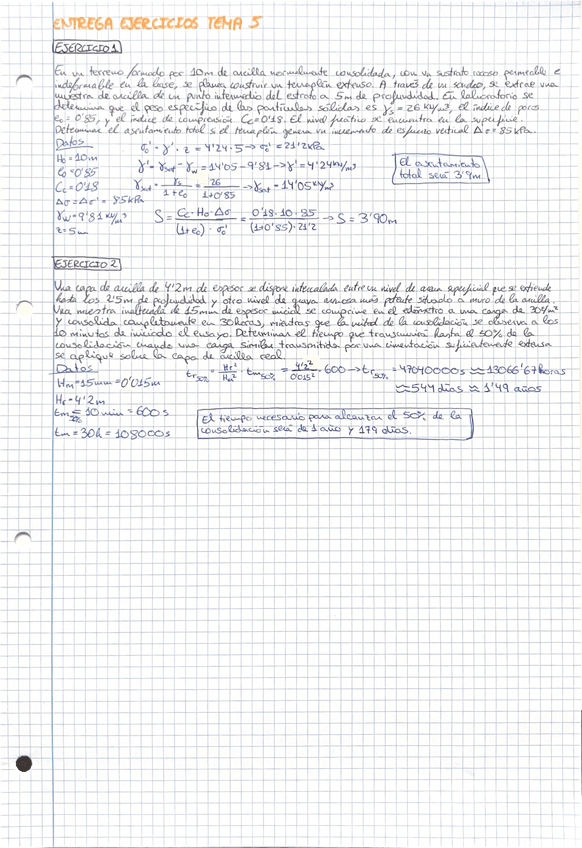 ENTREGA EJERCICIOS TEMA 5
EJERCICIO 1
En un terreno formado por 10m de arcilla normalmente consolidada, con un sustrato rocoso permeable e
indeformable en la base, se planea construir un terraplén extenso. A través de un sondeo, se extrae una
muestra de arcilla de un punto intermedio del estrato a 5m de profundidad. En laboratorio se
determina que el peso específico de las partículas sólidas es γs = 26 kN/m³, el índice de poros
e₀ = 0'85, y el índice de compresión Cc = 0'18. El nivel freático se encuentra en la superficie.
Determinar el asentamiento total si el terraplén genera un incremento de esfuerzo vertical Δσ = 85 kPa.
Datos
H₀ = 10m
e₀ = 0'85
Cc = 0'18
Δσ = Δσ' = 85 kPa
γw = 9'81 kN/m³
z = 5m
σ₀' = γ' · z = 4'24 · 5 → σ₀' = 21'2 kPa
γ' = γsat − γw = 14'05 − 9'81 → γ' = 4'24 kN/m³
γsat = γs / (1+e₀) = 26 / (1+0'85) → γsat = 14'05 kN/m³
S = (Cc · H₀ · Δσ) / ((1+e₀) · σ₀') = (0'18 · 10 · 85) / ((1+0'85) · 21'2) → S = 3'90m
El asentamiento
total será 3'9m
EJERCICIO 2
Una capa de arcilla de 4'2m de espesor se dispone intercalada entre un nivel de arena superficial que se extiende
hasta los 2'5m de profundidad y otro nivel de grava arenosa más potente situado a muro de la arcilla.
Una muestra inalterada de 15mm de espesor inicial se comprime en el edómetro a una carga de 30N/m²
y consolida completamente en 30 horas, mientras que la mitad de la consolidación se observa a los
10 minutos de iniciado el ensayo. Determinar el tiempo que transcurrirá hasta el 50% de la
consolidación cuando una carga similar transmitida por una cimentación suficientemente extensa
se aplique sobre la capa de arcilla real.
Datos
Hm = 15mm = 0'015m
Hr = 4'2m
tm 50% = 10 min = 600 s
tm = 30h = 108000 s
tr50% = Hr² / Hm² · tm50% = 4'2² / 0'015² · 600 → tr50% = 47040000 s ≈ 13066'67 horas
≈ 544 días ≈ 1'49 años
El tiempo necesario para alcanzar el 50% de la
consolidación será de 1 año y 179 días.